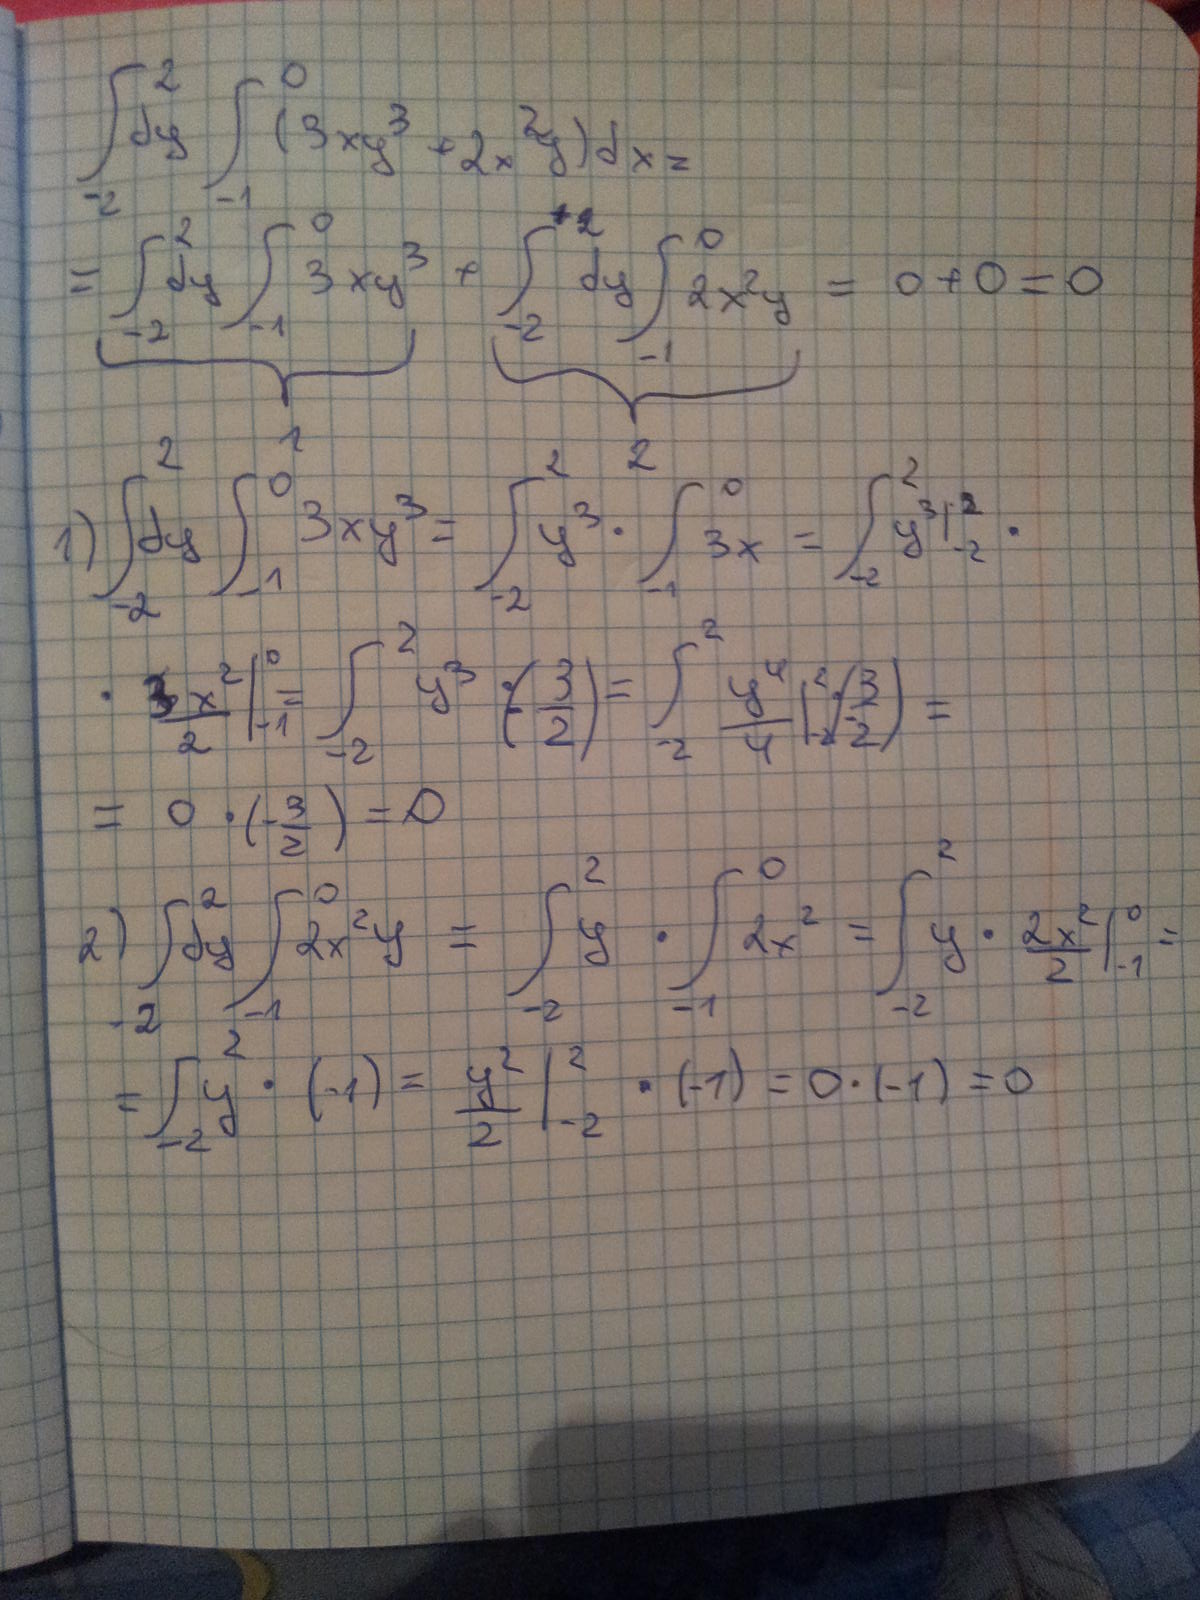 ∫_{-2}^{2} dy ∫_{-1}^{0} (3xy³ + 2x²y) dx =
= ∫_{-2}^{2} dy ∫_{-1}^{0} 3xy³ + ∫_{-2}^{+2} dy ∫_{-1}^{0} 2x²y = 0 + 0 = 0
1 2
1) ∫_{-2}^{2} dy ∫_{-1}^{0} 3xy³ = ∫_{-2}^{2} y³ · ∫_{-1}^{0} 3x = ∫_{-2}^{2} y³ |_{-2}^{2} ·
· 3x²/2 |_{-1}^{0} = ∫_{-2}^{2} y³ · (-3/2) = ∫_{-2}^{2} y⁴/4 |_{-2}^{2} · (-3/2) =
= 0 · (-3/2) = 0
2) ∫_{-2}^{2} dy ∫_{-1}^{0} 2x²y = ∫_{-2}^{2} y · ∫_{-1}^{0} 2x² = ∫_{-2}^{2} y · 2x²/2 |_{-1}^{0} =
= ∫_{-2}^{2} y · (-1) = y²/2 |_{-2}^{2} · (-1) = 0 · (-1) = 0